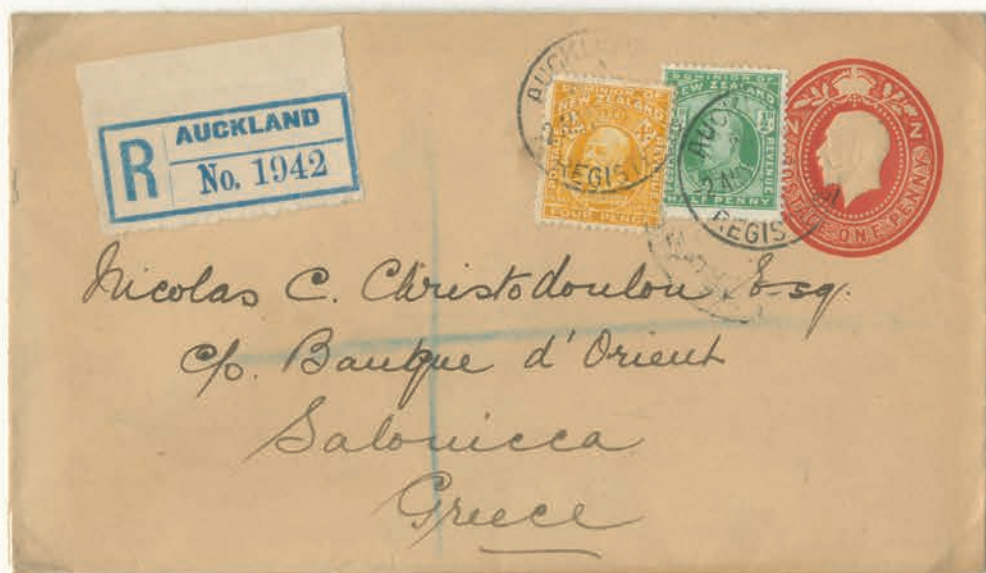 AUCKLAND
R
No. 1942
DOMINION OF
NEW ZEALAND
FOUR PENCE
DOMINION OF
NEW ZEALAND
REVENUE
HALF PENNY
REGIS
REGIS
N Z
POSTAGE ONE PENNY
Nicolas C. Christodoulou Esq.
c/o. Banque d'Orient
Salonicca
Greece